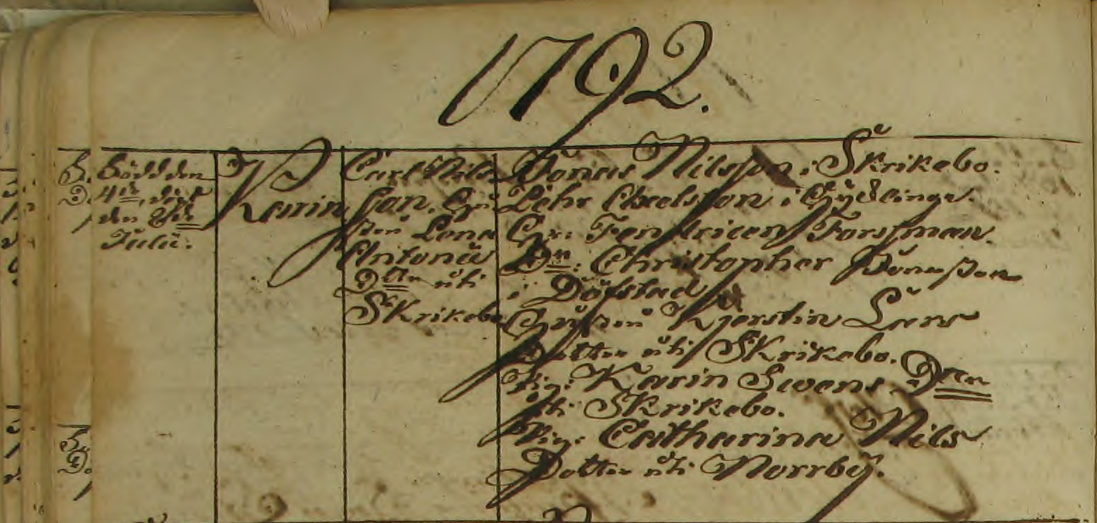 1792.
Född den
4de, döpt
den 8de
Julii.
Karin
Carl Nils
Son. Hu
stru Lena
Antonii
Dtter uti
Skrikebo
Jonas Nilsson i Skrikebo.
Pehr Axelsson i Gydlinge.
Fendricen Forssman.
Christopher Jonsson
i Döfstad
Hustru Kjerstin Lars
Dotter uti Skrikebo.
Pig: Karin Swens Dtter
uti Skrikebo.
Pig: Catharina Nils
Dotter uti Norrby.